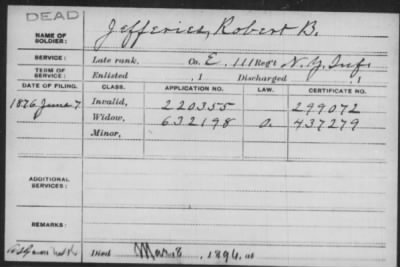 DEAD
NAME OF SOLDIER: Jefferies, Robert B.
SERVICE: Late rank, Co. E, 111 Reg't N.Y. Inf.
TERM OF SERVICE: Enlisted , 1 Discharged , 1
DATE OF FILING. CLASS. APPLICATION NO. LAW. CERTIFICATE NO.
1876 June 7 Invalid, 220355 299072
Widow, 632198 O. 437279
Minor,
ADDITIONAL SERVICES:
REMARKS:
Died Mar. 8, 1894, at